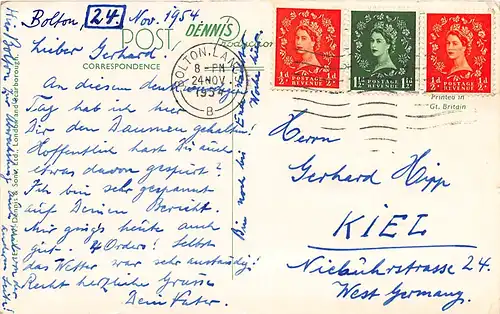 Bolton, 24. Nov. 1954.
POST DENNIS
CORRESPONDENCE
Lieber Gerhard.
An diesem denkwürdigen
Tag hab ich hier
Dir den Daumen gehalten!
Hoffentlich hast Du auch
etwas davon gespürt?
Ich bin sehr gespannt
auf Deinen Bericht.
Mir ging's heute auch
gut. 4 Orders! Selbst
das Wetter war sehr anständig!
Recht herzliche Grüsse
Dein Vater.
Bin noch bis Ende
Woche hier.
Hier Bolton zur Abwechslung
anderen Seite!
Dennis & Sons Ltd., London and Scarborough.
BOLTON, LANCS.
8-PM
24 NOV
1954
B
½d POSTAGE REVENUE ½d
1½d POSTAGE REVENUE 1½d
½d POSTAGE REVENUE ½d
Printed in
Gt. Britain
Herrn
Gerhard Hipp
KIEL
Niebuhrstrasse 24.
West Germany.